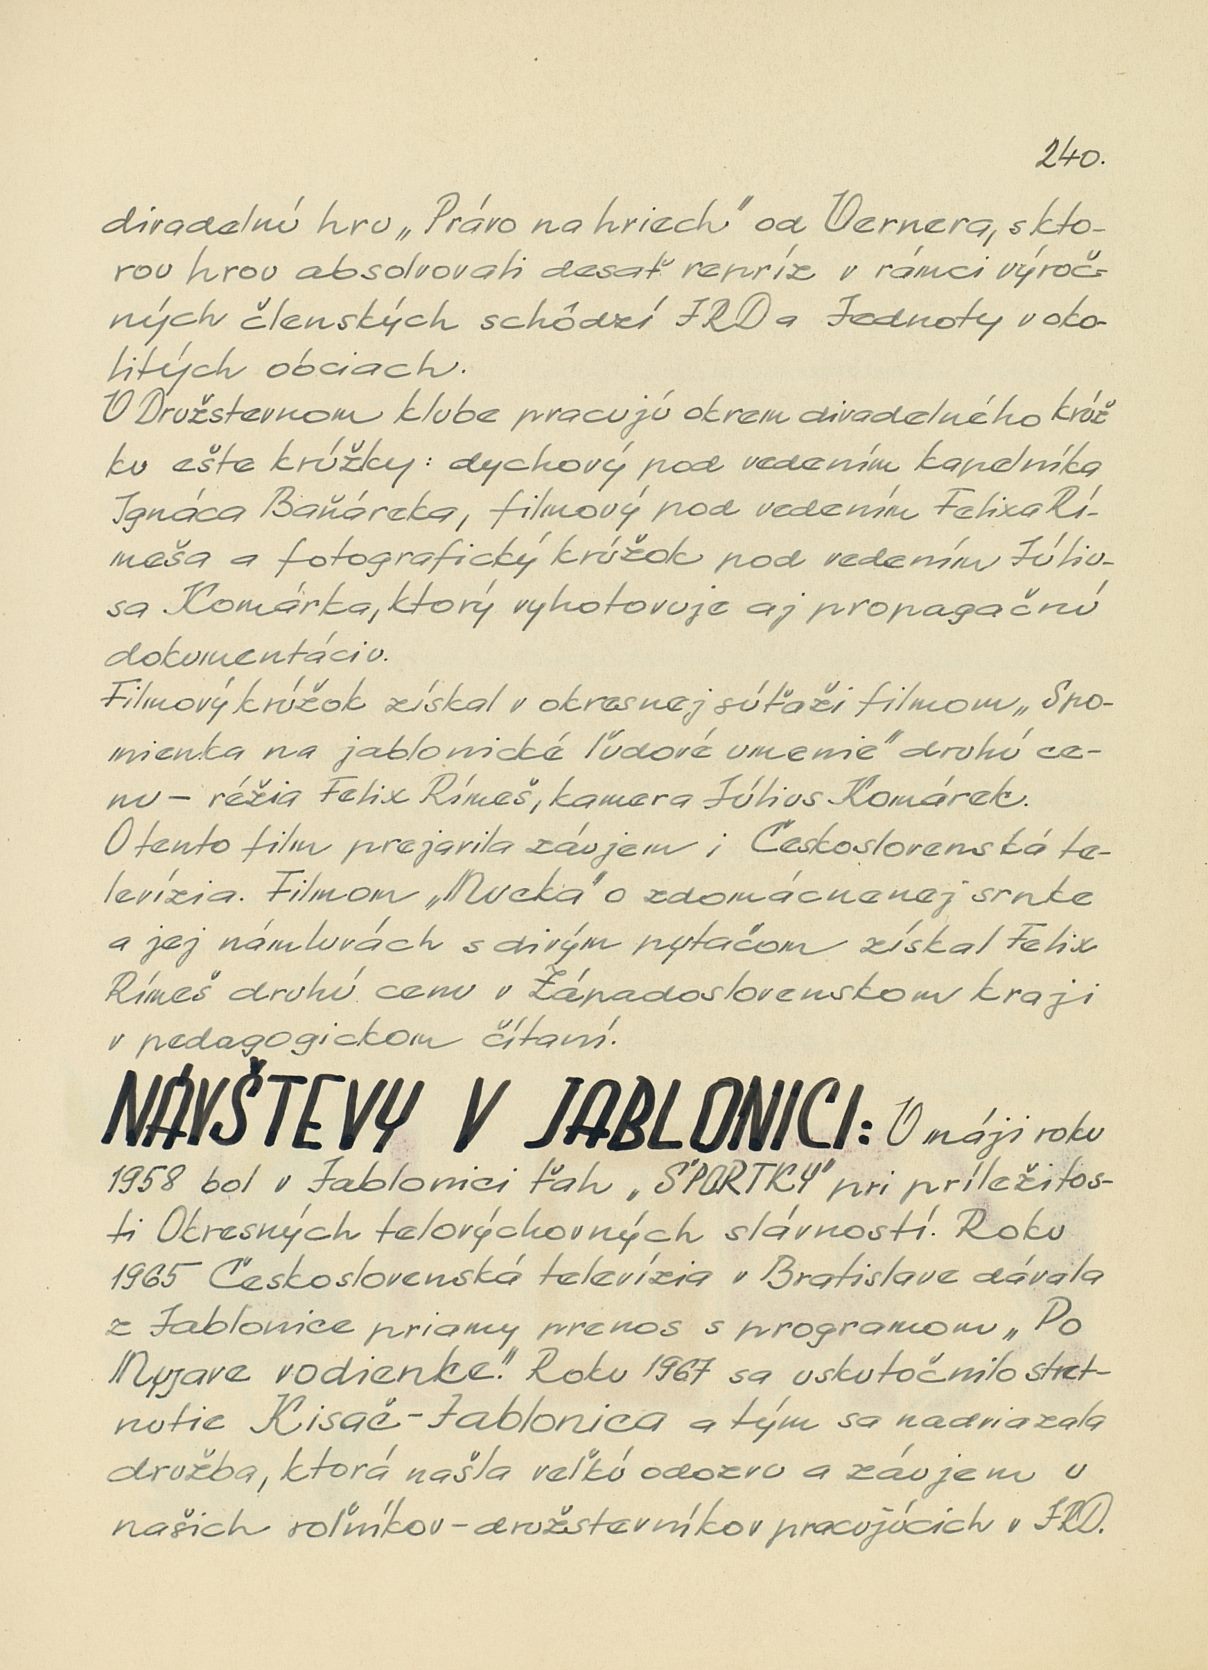 240.
divadelnú hru „Právo na hriech" od Vernera, s kto-
rou hrou absolvovali desať repríz v rámci výroč-
ných členských schôdzí JRD a Jednoty v oko-
litých obciach.
V Družstevnom klube pracujú okrem divadelného krúž
ku ešte krúžky: dychový pod vedením kapelníka
Ignáca Baňáreka, filmový pod vedením Felixa Rí-
meša a fotografický krúžok pod vedením Júliu-
sa Komárka, ktorý vyhotovuje aj propagačnú
dokumentáciu.
Filmový krúžok získal v okresnej súťaži filmom „Spo-
mienka na jablonické ľudové umenie" druhú ce-
nu – réžia Felix Rímeš, kamera Július Komárek.
O tento film prejavila záujem i Československá te-
levízia. Filmom „Mucka" o zdomácnenej srnke
a jej námluvách s divým pytačom získal Felix
Rímeš druhú cenu v Západoslovenskom kraji
v pedagogickom čítaní.
NÁVŠTEVY V JABLONICI: V máji roku
1958 bol v Jablonici ťah „ŠPORTKY" pri príležitos-
ti Okresných telovýchovných slávností. Roku
1965 Československá televízia v Bratislave dávala
z Jablonice priamy prenos s programom „Po
Myjave vodienke." Roku 1967 sa uskutočnilo stret-
nutie Kisač-Jablonica a tým sa nadviazala
družba, ktorá našla veľkú odozvu a záujem u
našich roľníkov – družstevníkov pracujúcich v JRD.